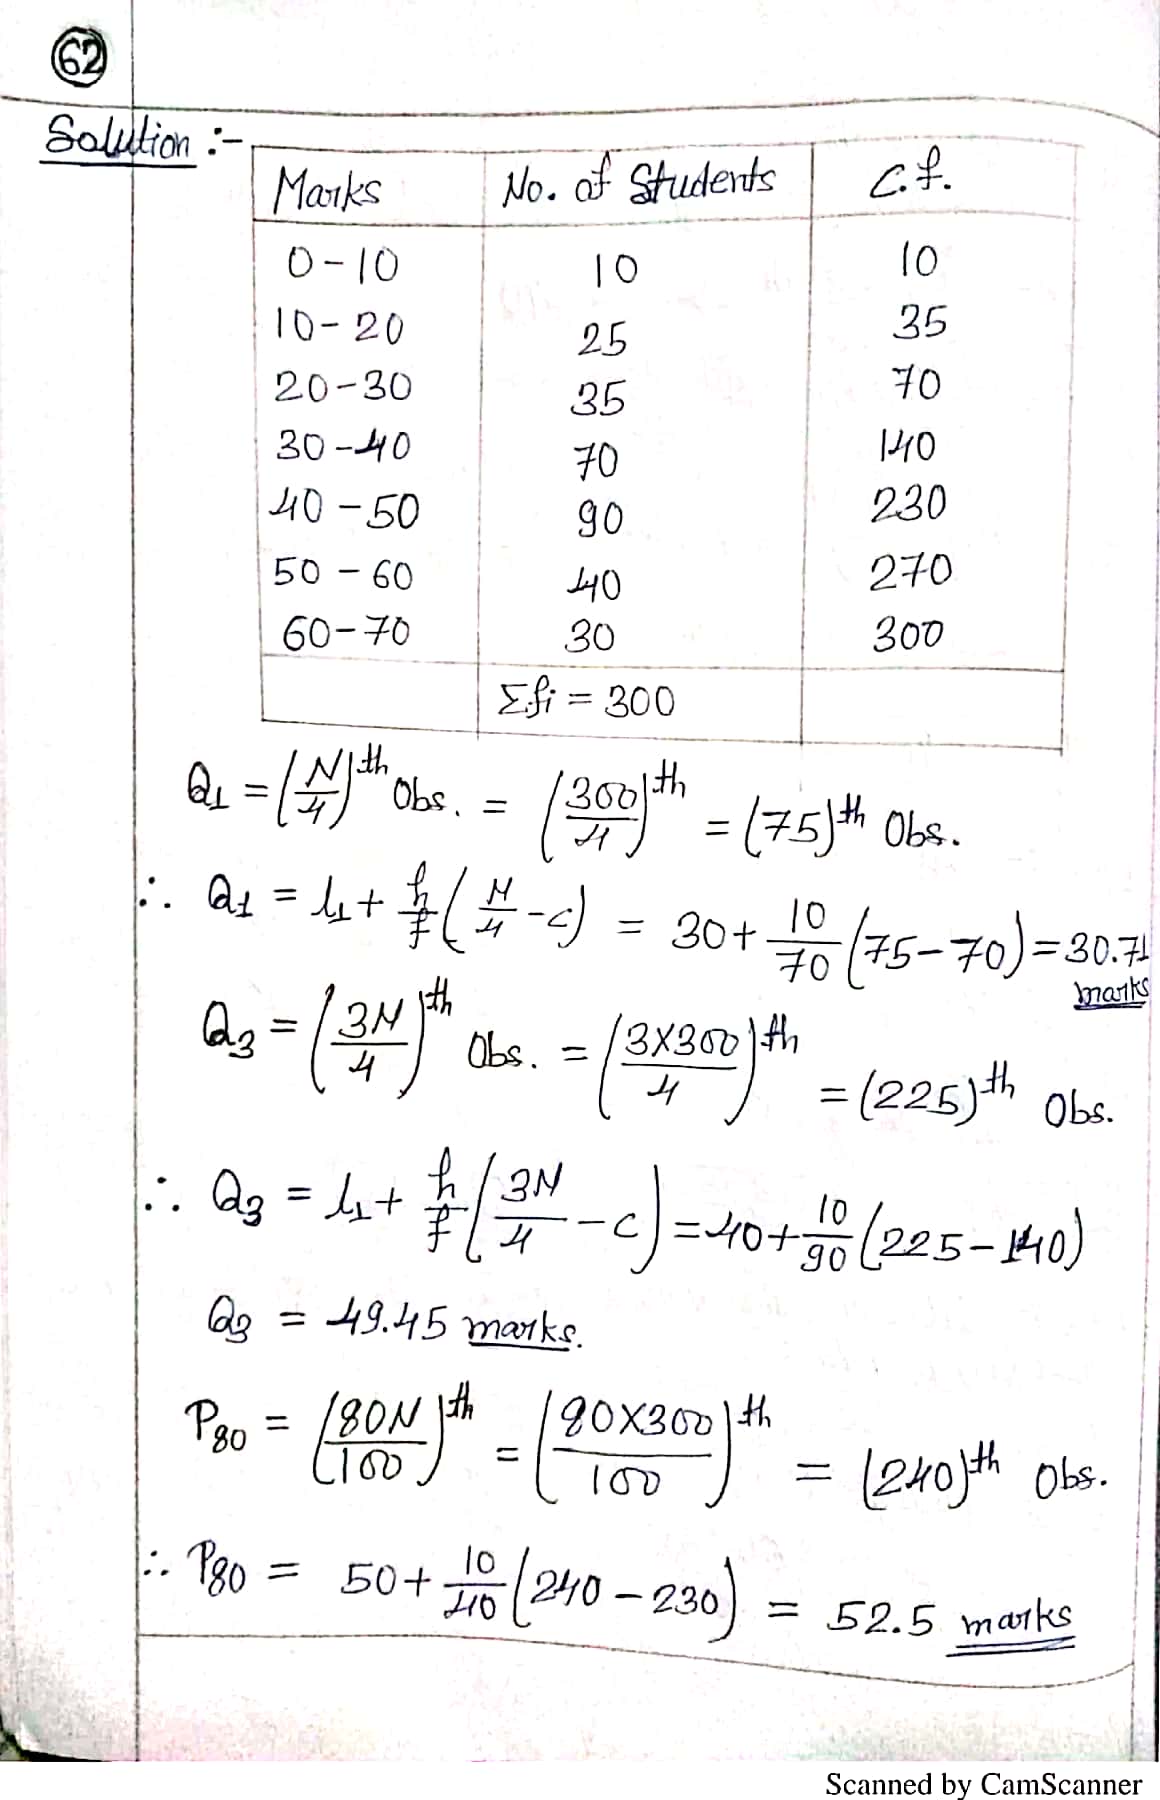 62
Solution :-
Marks | No. of Students | C.f.
0-10 | 10 | 10
10-20 | 25 | 35
20-30 | 35 | 70
30-40 | 70 | 140
40-50 | 90 | 230
50-60 | 40 | 270
60-70 | 30 | 300
Σfi = 300
Q1 = (N/4)th Obs. = (300/4)th = (75)th Obs.
∴ Q1 = l1 + h/f (N/4 - c) = 30 + 10/70 (75-70) = 30.71 marks
Q3 = (3N/4)th Obs. = (3×300/4)th = (225)th Obs.
∴ Q3 = l1 + h/f (3N/4 - c) = 40 + 10/90 (225-140)
Q3 = 49.45 marks.
P80 = (80N/100)th = (80×300/100)th = (240)th Obs.
∴ P80 = 50 + 10/40 (240-230) = 52.5 marks
Scanned by CamScanner